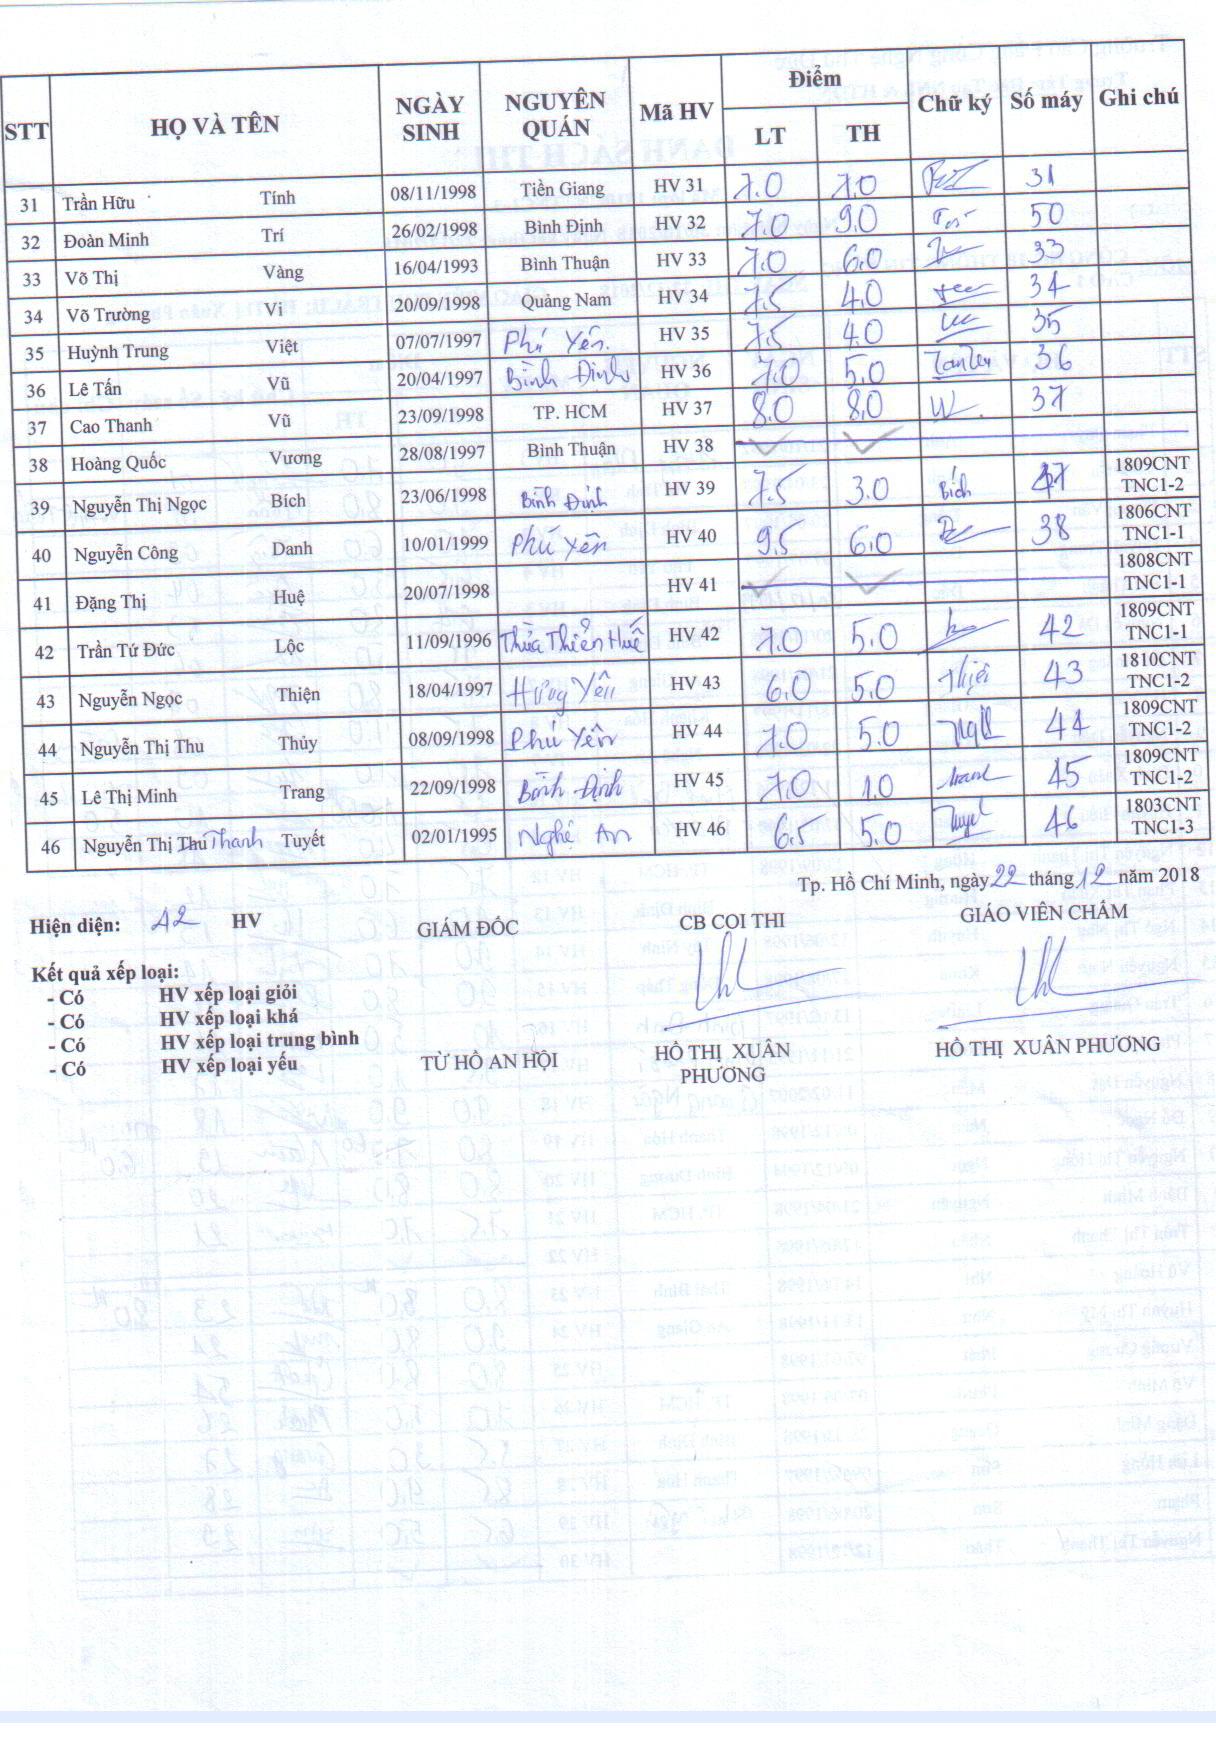 STT HỌ VÀ TÊN NGÀY SINH NGUYÊN QUÁN Mã HV Điểm LT TH Chữ ký Số máy Ghi chú
31 Trần Hữu Tính 08/11/1998 Tiền Giang HV 31 7.0 7.0 31
32 Đoàn Minh Trí 26/02/1998 Bình Định HV 32 7.0 9.0 50
33 Võ Thị Vàng 16/04/1993 Bình Thuận HV 33 7.0 6.0 33
34 Võ Trường Vi 20/09/1998 Quảng Nam HV 34 7.5 4.0 34
35 Huỳnh Trung Việt 07/07/1997 Phú Yên. HV 35 7.5 4.0 35
36 Lê Tấn Vũ 20/04/1997 Bình Định HV 36 7.0 5.0 36
37 Cao Thanh Vũ 23/09/1998 TP. HCM HV 37 8.0 8.0 37
38 Hoàng Quốc Vương 28/08/1997 Bình Thuận HV 38
39 Nguyễn Thị Ngọc Bích 23/06/1998 Bình Định HV 39 7.5 3.0 Bích 1809CNT TNC1-2
40 Nguyễn Công Danh 10/01/1999 Phú Yên HV 40 9.5 6.0 38 1806CNT TNC1-1
41 Đặng Thị Huệ 20/07/1998 HV 41 1808CNT TNC1-1
42 Trần Tứ Đức Lộc 11/09/1996 Thừa Thiên Huế HV 42 7.0 5.0 42 1809CNT TNC1-1
43 Nguyễn Ngọc Thiện 18/04/1997 Hưng Yên HV 43 6.0 5.0 43 1810CNT TNC1-2
44 Nguyễn Thị Thu Thủy 08/09/1998 Phú Yên HV 44 7.0 5.0 44 1809CNT TNC1-2
45 Lê Thị Minh Trang 22/09/1998 Bình Định HV 45 7.0 1.0 45 1809CNT TNC1-2
46 Nguyễn Thị Thu Thanh Tuyết 02/01/1995 Nghệ An HV 46 6.5 5.0 46 1803CNT TNC1-3
Tp. Hồ Chí Minh, ngày 22 tháng 12 năm 2018
Hiện diện: 42 HV GIÁM ĐỐC CB COI THI GIÁO VIÊN CHẤM
Kết quả xếp loại:
- Có HV xếp loại giỏi
- Có HV xếp loại khá
- Có HV xếp loại trung bình
- Có HV xếp loại yếu
TỪ HỒ AN HỘI HỒ THỊ XUÂN PHƯƠNG HỒ THỊ XUÂN PHƯƠNG